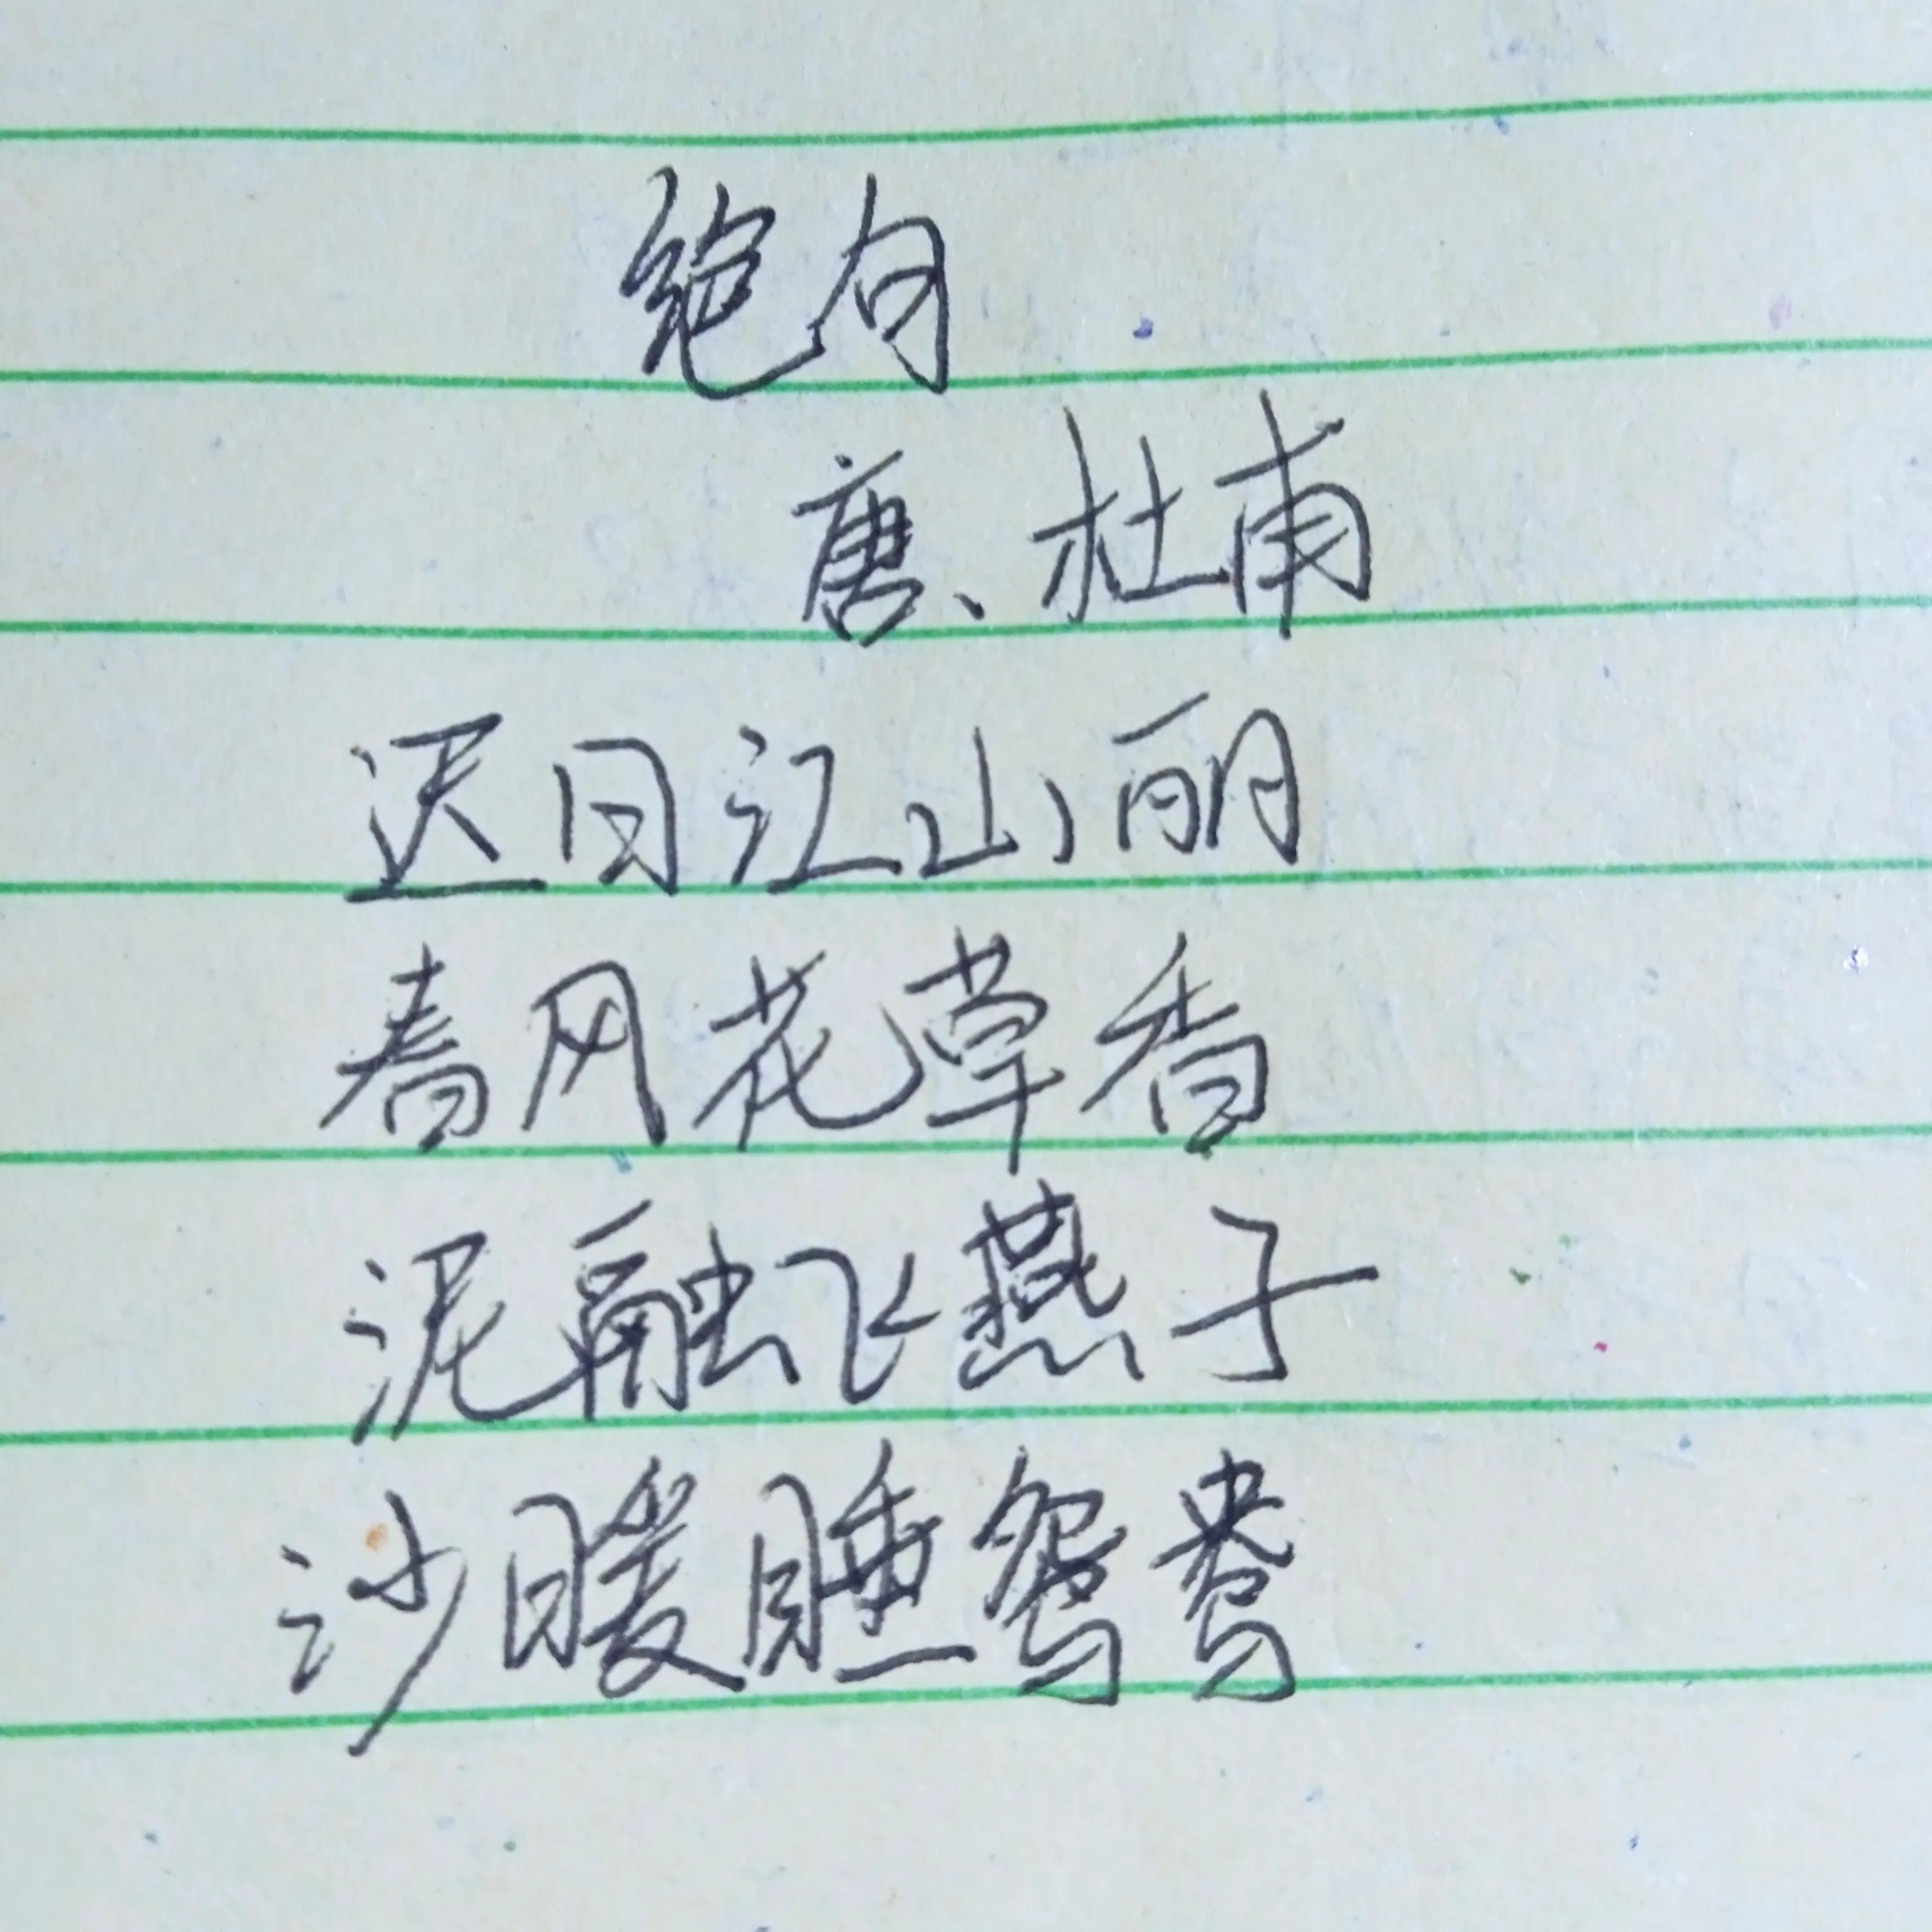 绝句
唐、杜甫
迟日江山丽
春风花草香
泥融飞燕子
沙暖睡鸳鸯